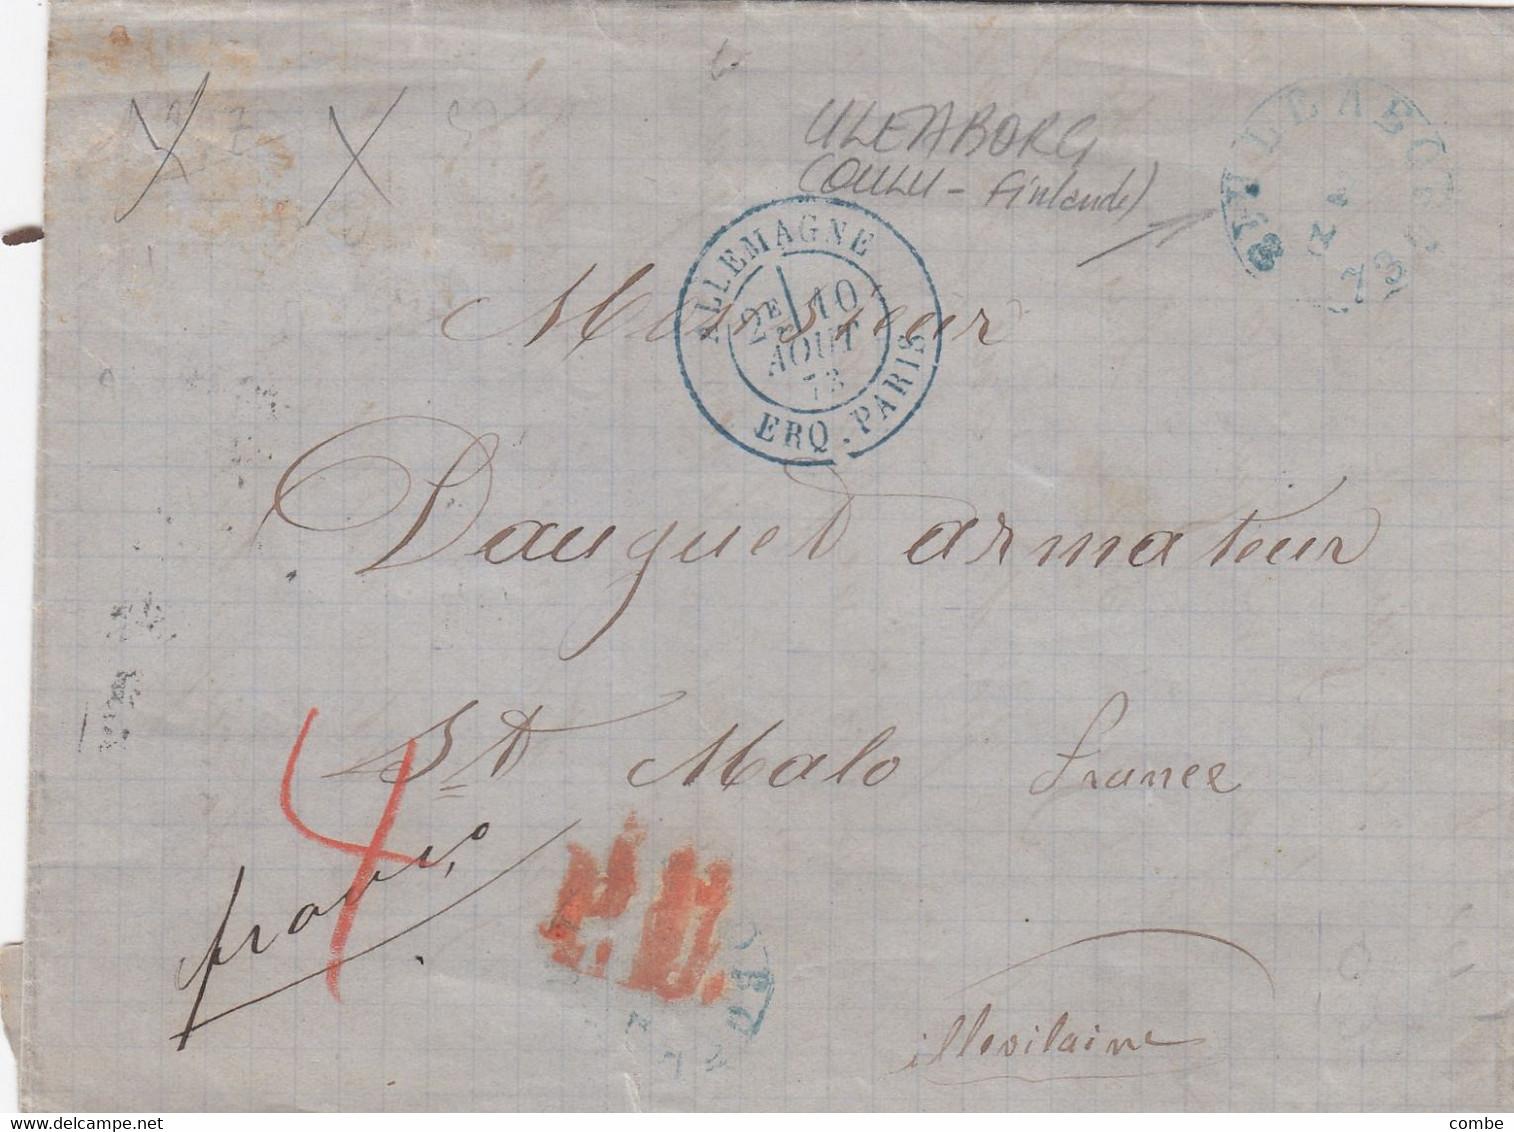 ULEABORG
(OULU - Finlande)
ULEABORG
73
ALLEMAGNE
2E 10
AOUT
73
ERQ. PARIS
Monsieur
Dauguet armateur
St Malo france
4
franco
P.D.
illevilaine
©DELCAMPE
combe